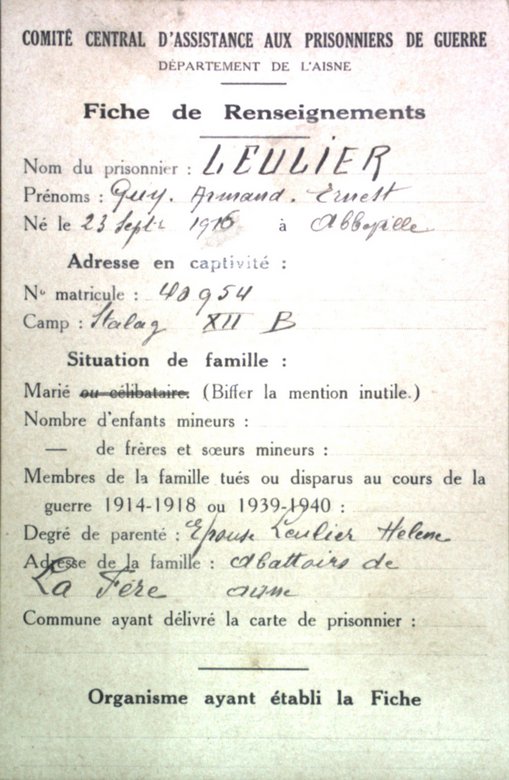 COMITÉ CENTRAL D'ASSISTANCE AUX PRISONNIERS DE GUERRE
DÉPARTEMENT DE L'AISNE
Fiche de Renseignements
Nom du prisonnier : LEULIER
Prénoms : Guy. Armand. Ernest
Né le 23 Septr 1916 à Abbeville
Adresse en captivité :
No matricule : 40954
Camp : Stalag XII B
Situation de famille :
Marié ou célibataire. (Biffer la mention inutile.)
Nombre d'enfants mineurs :
— de frères et sœurs mineurs :
Membres de la famille tués ou disparus au cours de la
guerre 1914-1918 ou 1939-1940 :
Degré de parenté : Epouse Leulier Helene
Adresse de la famille : Abattoirs de
La Fère aisne
Commune ayant délivré la carte de prisonnier :
Organisme ayant établi la Fiche